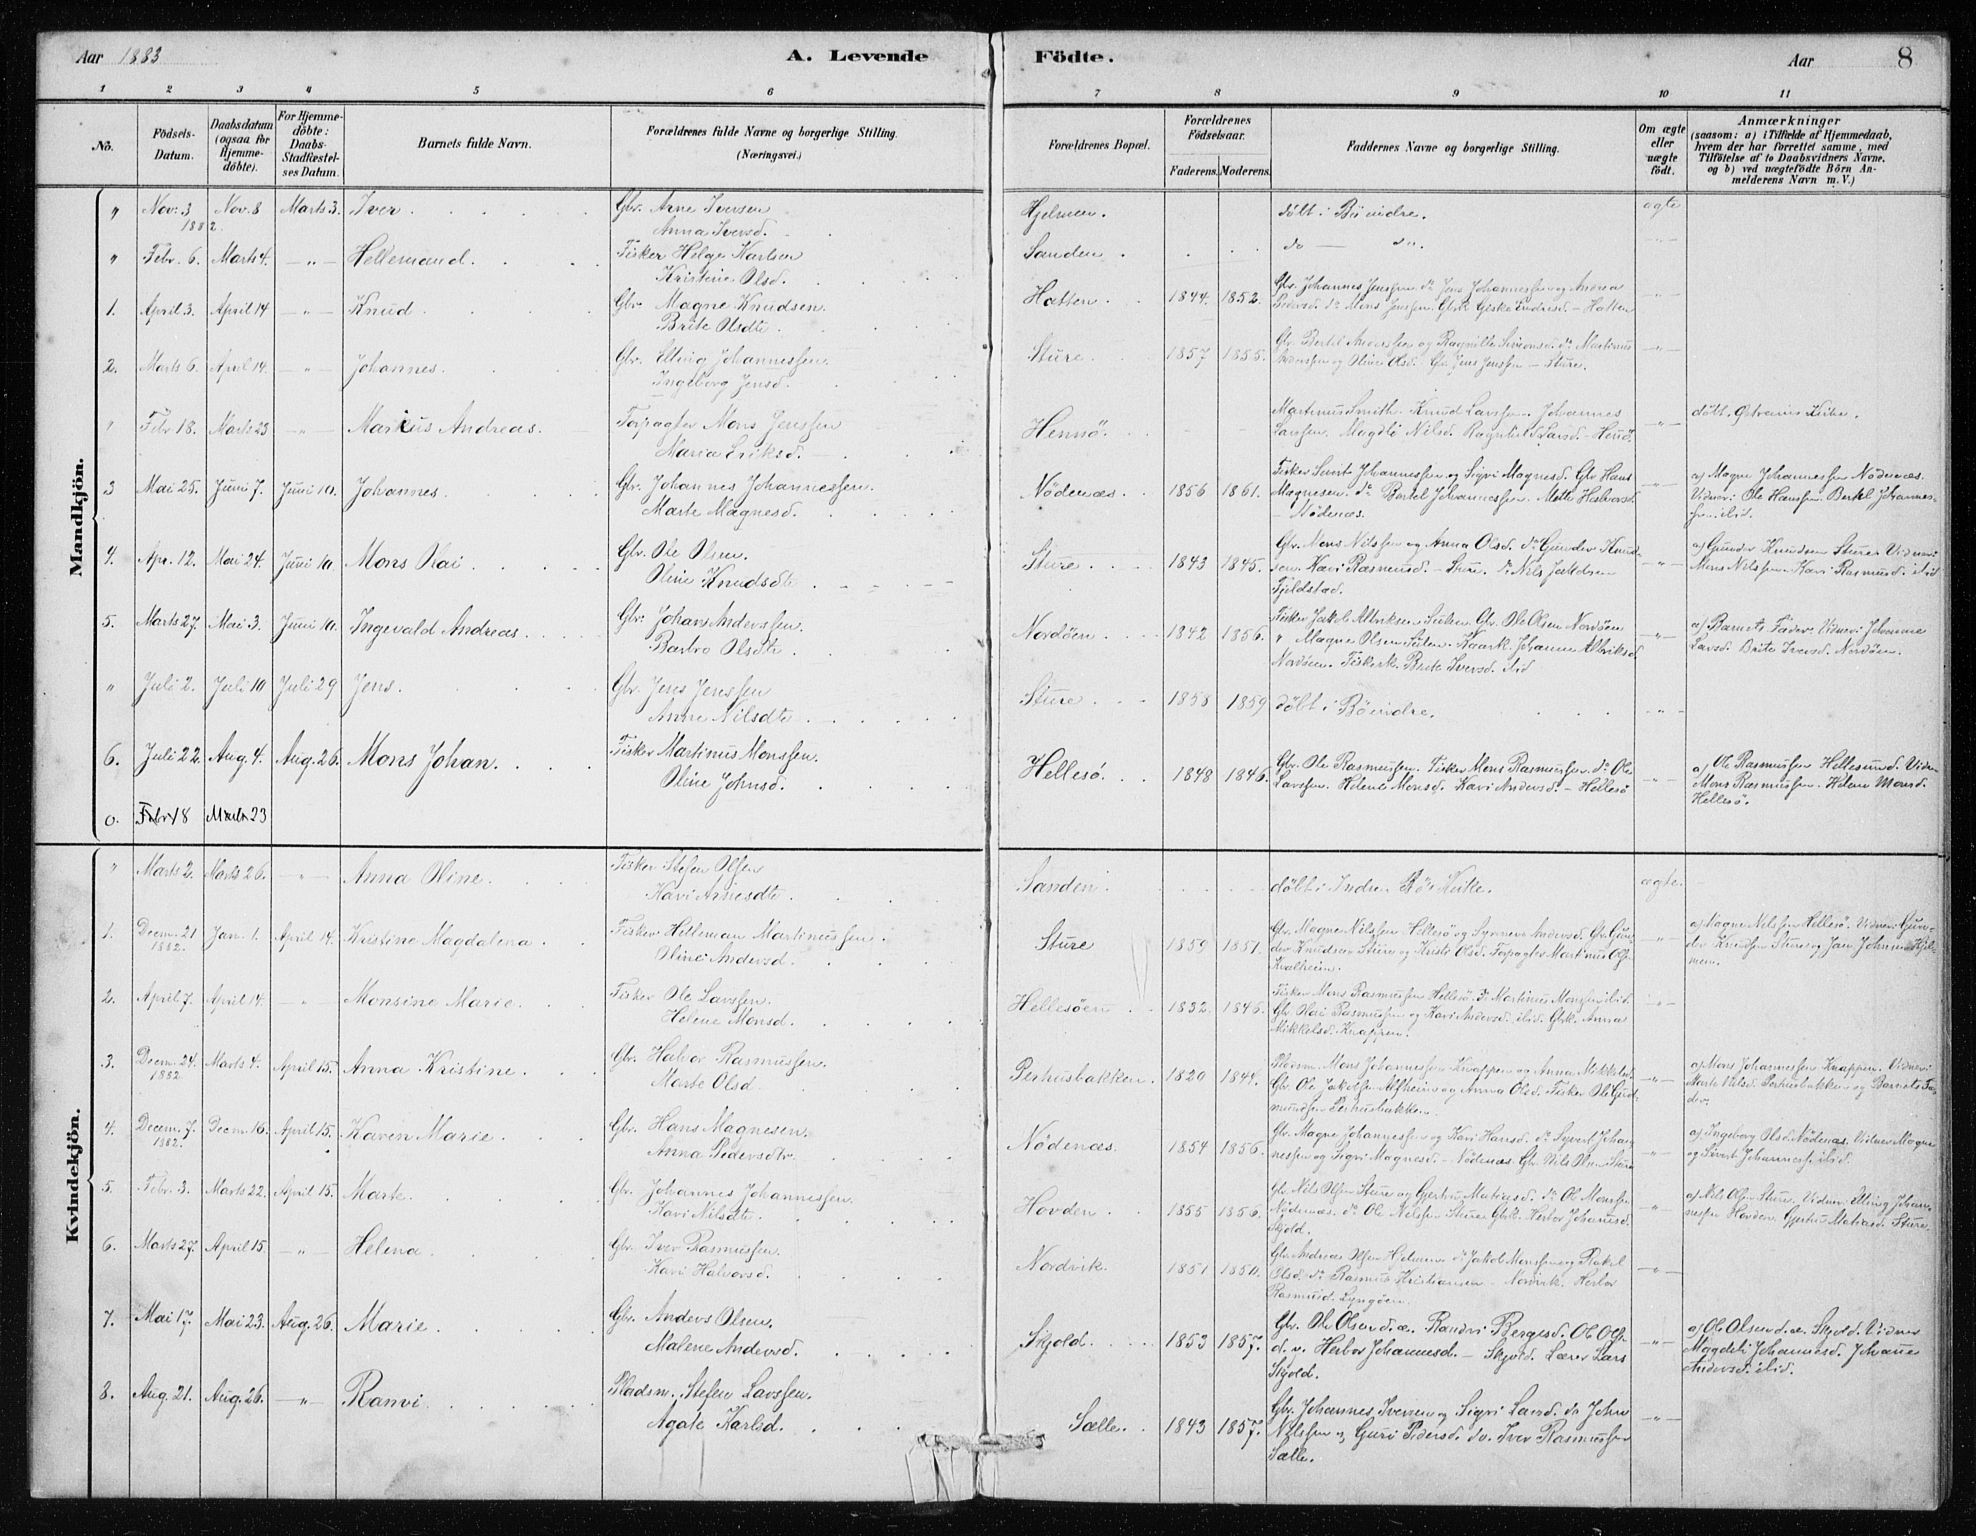 Aar 1883
A. Levende
Födte.
Aar
8
1 2 3 4 5 6 7 8 9 10 11
No.
Födsels-Datum.
Daabsdatum (ogsaa for Hjemme-döbte).
For Hjemme-döbte: Daabs-Stadfæstel-ses Datum.
Barnets fulde Navn.
Forældrenes fulde Navne og borgerlige Stilling. (Næringsvei.)
Forældrenes Bopæl.
Forældrenes Födselsaar.
Faderens. Moderens.
Faddernes Navne og borgerlige Stilling.
Om ægte eller uægte födt.
Anmærkninger
(saasom: a) i Tilfælde af Hjemmedaab, hvem der har forrettet samme, med Tilföielse af to Daabsvidners Navne, og b) ved uægtefödte Börn An-melderens Navn m. V.)
Mandkjön.
" Nov. 3 1882. Nov. 8 Marts 3. Iver Gbr. Arne Iversen
Anna Iversd. Hjelmen. döbt i Bö indre. ægte
" Febr. 6. Marts 4. —"— Hellemand. Fisker Helge Karlsen
Kristine Olsd. Sanden do — do. —"—
1. April 3. April 14 —"— Knud Gbr. Magne Knudsen
Brite Olsdtr. Hatten 1844. 1852. Gbr. Johannes Jenssen do Jens Johannessen og Andrea
Pedersd. do Mons Jenssen. Gbrk. Geske Endresd. – Hatten —"—
2. Marts 6. April 14. —"— Johannes. Gbr. Elling Johannessen.
Ingeborg Jensd. Sture. 1857 1855. Gbr Bertel Anderssen og Ragnille Simonsd. do Martinus
Anderssen og Oline Olsd. Gbr. Jens Jenssen – Sture. —"—
" Febr 18. Marts 23 —"— Marius Andreas. Forpagter Mons Jenssen
Maria Eriksd. Hennö. Martinus Smith. Knud Larssen. Johannes
Larssen. Magdli Nilsd. Ragnhild Larsd. – Henö. —"— döbt
3 Mai 25. Juni 7. Juni 10. Johannes. Gbr. Johannes Johannessen.
Marte Magnesd. Nödenæs. 1856 1861. Fisker Sivert Johannessen og Sigri Magnesd. Gbr Hans
Magnesen. do Bertel Johannessen. Mette Halvorsd.
– Nödenæs. —"— a) Magne Johannessen Nödenæs.
Vidner: Ole Hanssen Bertel Johannes-
sen ibid.
4. Apr. 12. Mai 24. Juni 10. Mons Olai Gbr. Ole Olsen.
Oline Knudsdtr. Sture. 1843 1845. Gbr. Mons Nilssen og Anna Olsd. do Gunder Knud-
sen. Kari Rasmusd. – Sture. do Nils Jakobsen
Fjeldstad. —"— a) Gunder Knudsen Sture. Vidner:
Mons Nilssen. Kari Rasmusd. ibid
5. Marts 27. Mai 3. Juni 10. Ingevald Andreas. Gbr. Johan Anderssen.
Barbro Olsdtr. Nordöen 1842 1856. Fisker Jakob Albriksen Sulen. Gbr. Ole Olsen Nordöen
" Magne Olsen Sulen. Johanne Albriksd.
Nordöen. Fiskerk. Brite Iversd. ibid —"— a) Barnets Fader. Vidner: Johanne
Larsd. Brite Iversd. Nordöen.
" Juli 2. Juli 10 Juli 29 Jens. Gbr. Jens Jenssen
Anne Nilsdtr. Sture 1858 1859 döbt i Bö indre. —"—
6. Juli 22. Aug. 4. Aug. 26. Mons Johan. Fisker Martinus Monssen.
Oline Johnsd. Hellesö. 1848 1846. Gbr. Ole Rasmussen. Fisker Mons Rasmussen. do Ole
Larssen. Helene Monsd. Kari Andersd. – Hellesö —"— a) Ole Rasmussen Hellesund. Vidn.
Mons Rasmussen. Helene Monsd.
Hellesö.
0. Febr 18 Marts 23
Kvindekjön.
" Marts 2. Marts 26. —"— Anna Oline. Fisker Stefen Olsen
Kari Arnesdtr. Sanden döbt i Indre Bö Kirke. ægte.
1. Decm. 21 1882. Jan. 1. April 14. Kristine Magdalena Fisker Helleman Martinussen.
Oline Andersd. Sture 1859 1851. Gbr. Magne Nilssen Hellesö og Synneve Andersd. Gbr. Gun-
der Knudsen Sture og Kristi Olsd. Forpagter Martinus Ols.
Kvalheim. —"— a) Magne Nilssen Hellesö. Vidner: Gun-
der Knudsen Sture og Jan Johannes Hjel-
men.
2. April 7. April 14. —"— Monsine Marie Fisker Ole Larssen.
Helene Monsd. Hellesöen 1832. 1846. Fisker Mons Rasmussen Hellesö. do Martinus Monssen ibid.
Gbr. Olai Rasmussen og Kari Andersd. ibid. Gbrk. Anna
Mikkelsd. Knappen. —"—
3. Decm. 24. 1882 Marts 4. April 15. Anna Kristine. Gbr. Halvor Rasmussen.
Marte Olsd. Perhusbakken. 1820 1844. Pladsm. Mons Johannessen Knappen og Anna Mikkelsd.
Gbr. Ole Jakobsen Alfheim og Anna Olsd. Fisker Ole Gud-
mundsen Perhusbakken. —"— a) Mons Johannessen Knappen. Vidner:
Marte Nilsd. Perhusbakken og Barnets Fa-
der.
4. Decem. 7. 1882 Decm. 16. April 15. Karen Marie Gbr. Hans Magnesen.
Anna Pedersdtr. Nödenæs 1854 1856. Gbr. Magne Johannessen og Kari Hansd. do Syvert Johan-
nessen og Sigri Magnesd. – Nödenæs. Gbr. Nils Olsen Sture —"— a) Ingeborg Olsd. Nödenæs. Vidner Magne
og Sivert Johanness. ibid.
5. Febr. 3. Marts 22. April 15. Marte Gbr. Johannes Johannessen.
Kari Nilsdtr. Hovden 1855 1856. Gbr. Nils Olsen Sture og Gjertru Matiasd. do Ole Monssen
Nödenæs. do Ole Nilssen Sture Gbrk. Herbor Johannesd.
Skjold. —"— a) Nils Olsen Sture. Vidner: Elling Johan-
nessen Hovden. Gjertru Matiasd. Sture.
6. Marts 27. April 15. —"— Helena Gbr. Iver Rasmussen.
Kari Halvorsd. Nordvik. 1851 1850. Gbr. Andreas Olsen Hjelmen do Jakob Monssen og Rakel
Olsd. do Rasmus Kristiansen – Nordvik. Herbor
Rasmusd. Lyngöen. —"—
7. Mai 17. Mai 23. Aug. 26. Marie Gbr. Anders Olsen.
Malene Andersd. Skjold. 1853 1857. Gbr. Ole Olsen d. æ. Randvi Bergesd. Ole Ols.
d. y. Herbor Johannesd. – Skjold. Lærer Lars
Skjold. —"— a) Ole Olsen d. æ. Skjold. Vidner
Magdeli Johannesd. Johanne
Andersd. ibid.
8. Aug. 21. Aug. 26. —"— Ranvi Pladsm. Stefen Larssen.
Agate Karlsd. Sælle. 1843 1857. Gbr. Johannes Iversen og Sigri Larsd. do John
Nilssen og Guri Pedersd. do. Iver Rasmussen
Sælle. —"—